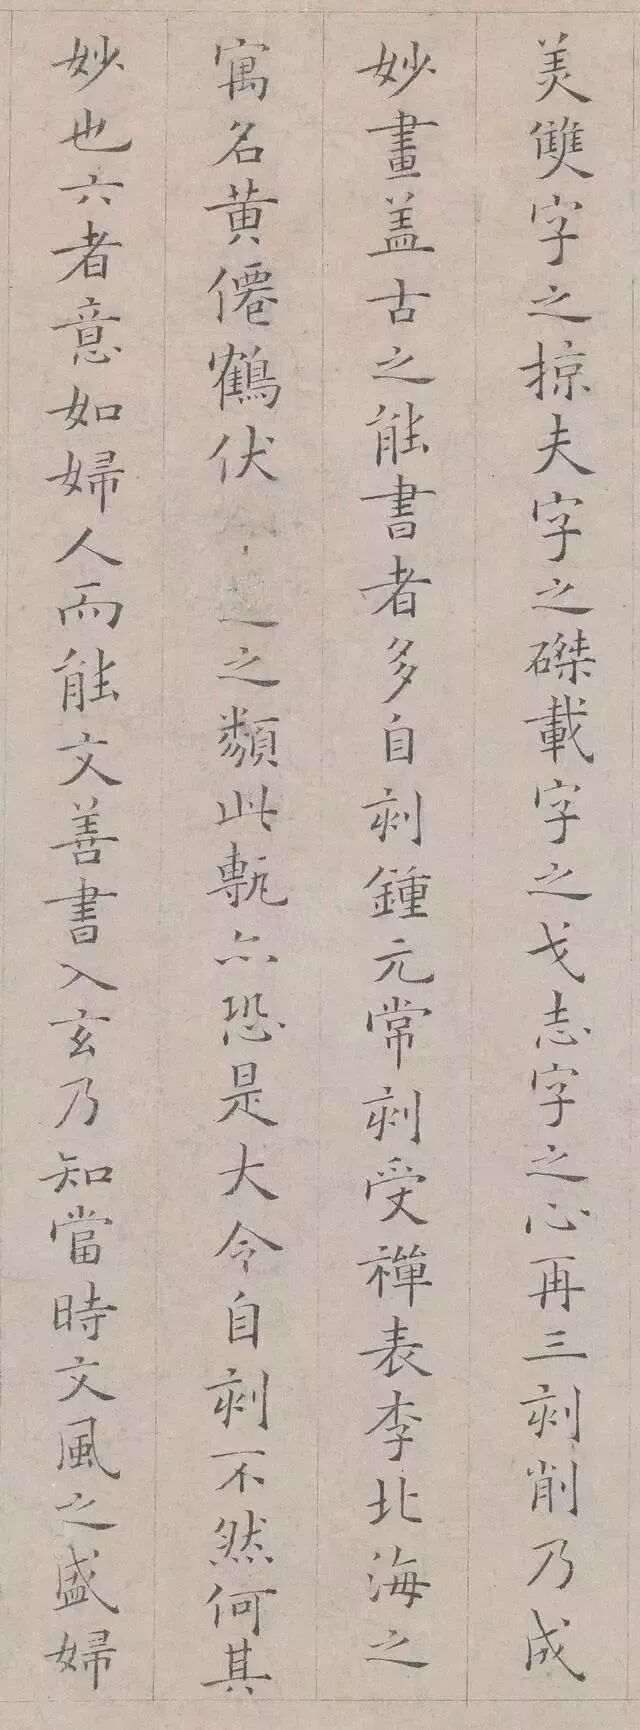 美雙字之掠夫字之磔載字之戈志字之心再三刻削乃成
妙畫盖古之能書者多自刻鍾元常刻受禪表李北海之
寓名黄僊鶴伏之類此甎亦恐是大令自刻不然何其
妙也六者意如婦人而能文善書入玄乃知當時文風之盛婦